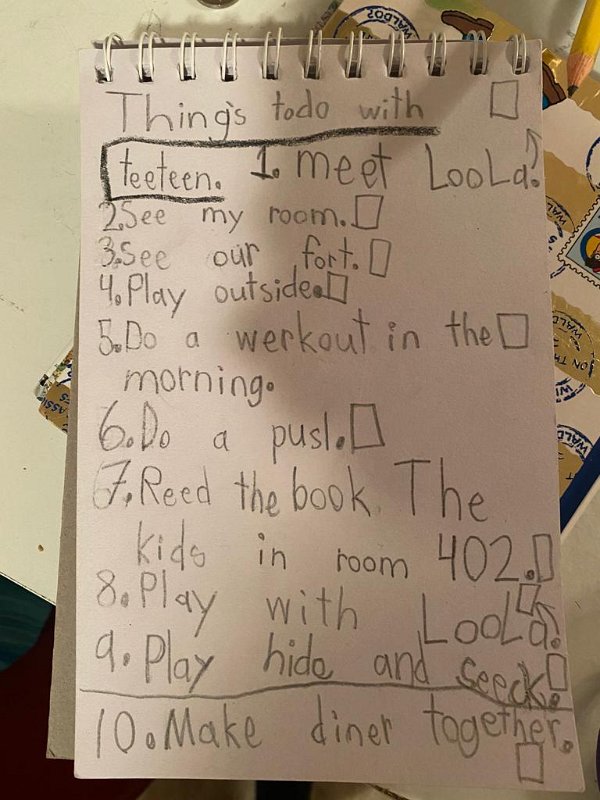 Things todo with
teeteen. 1. meet LooLa.
2.See my room.
3.See our fort.
4.Play outside.
5.Do a werkout in the
morning.
6.Do a pusl.
7.Reed the book The
kids in room 402.
8.Play with LooLa.
9.Play hide and seeck.
10.Make diner together.
WALDO?